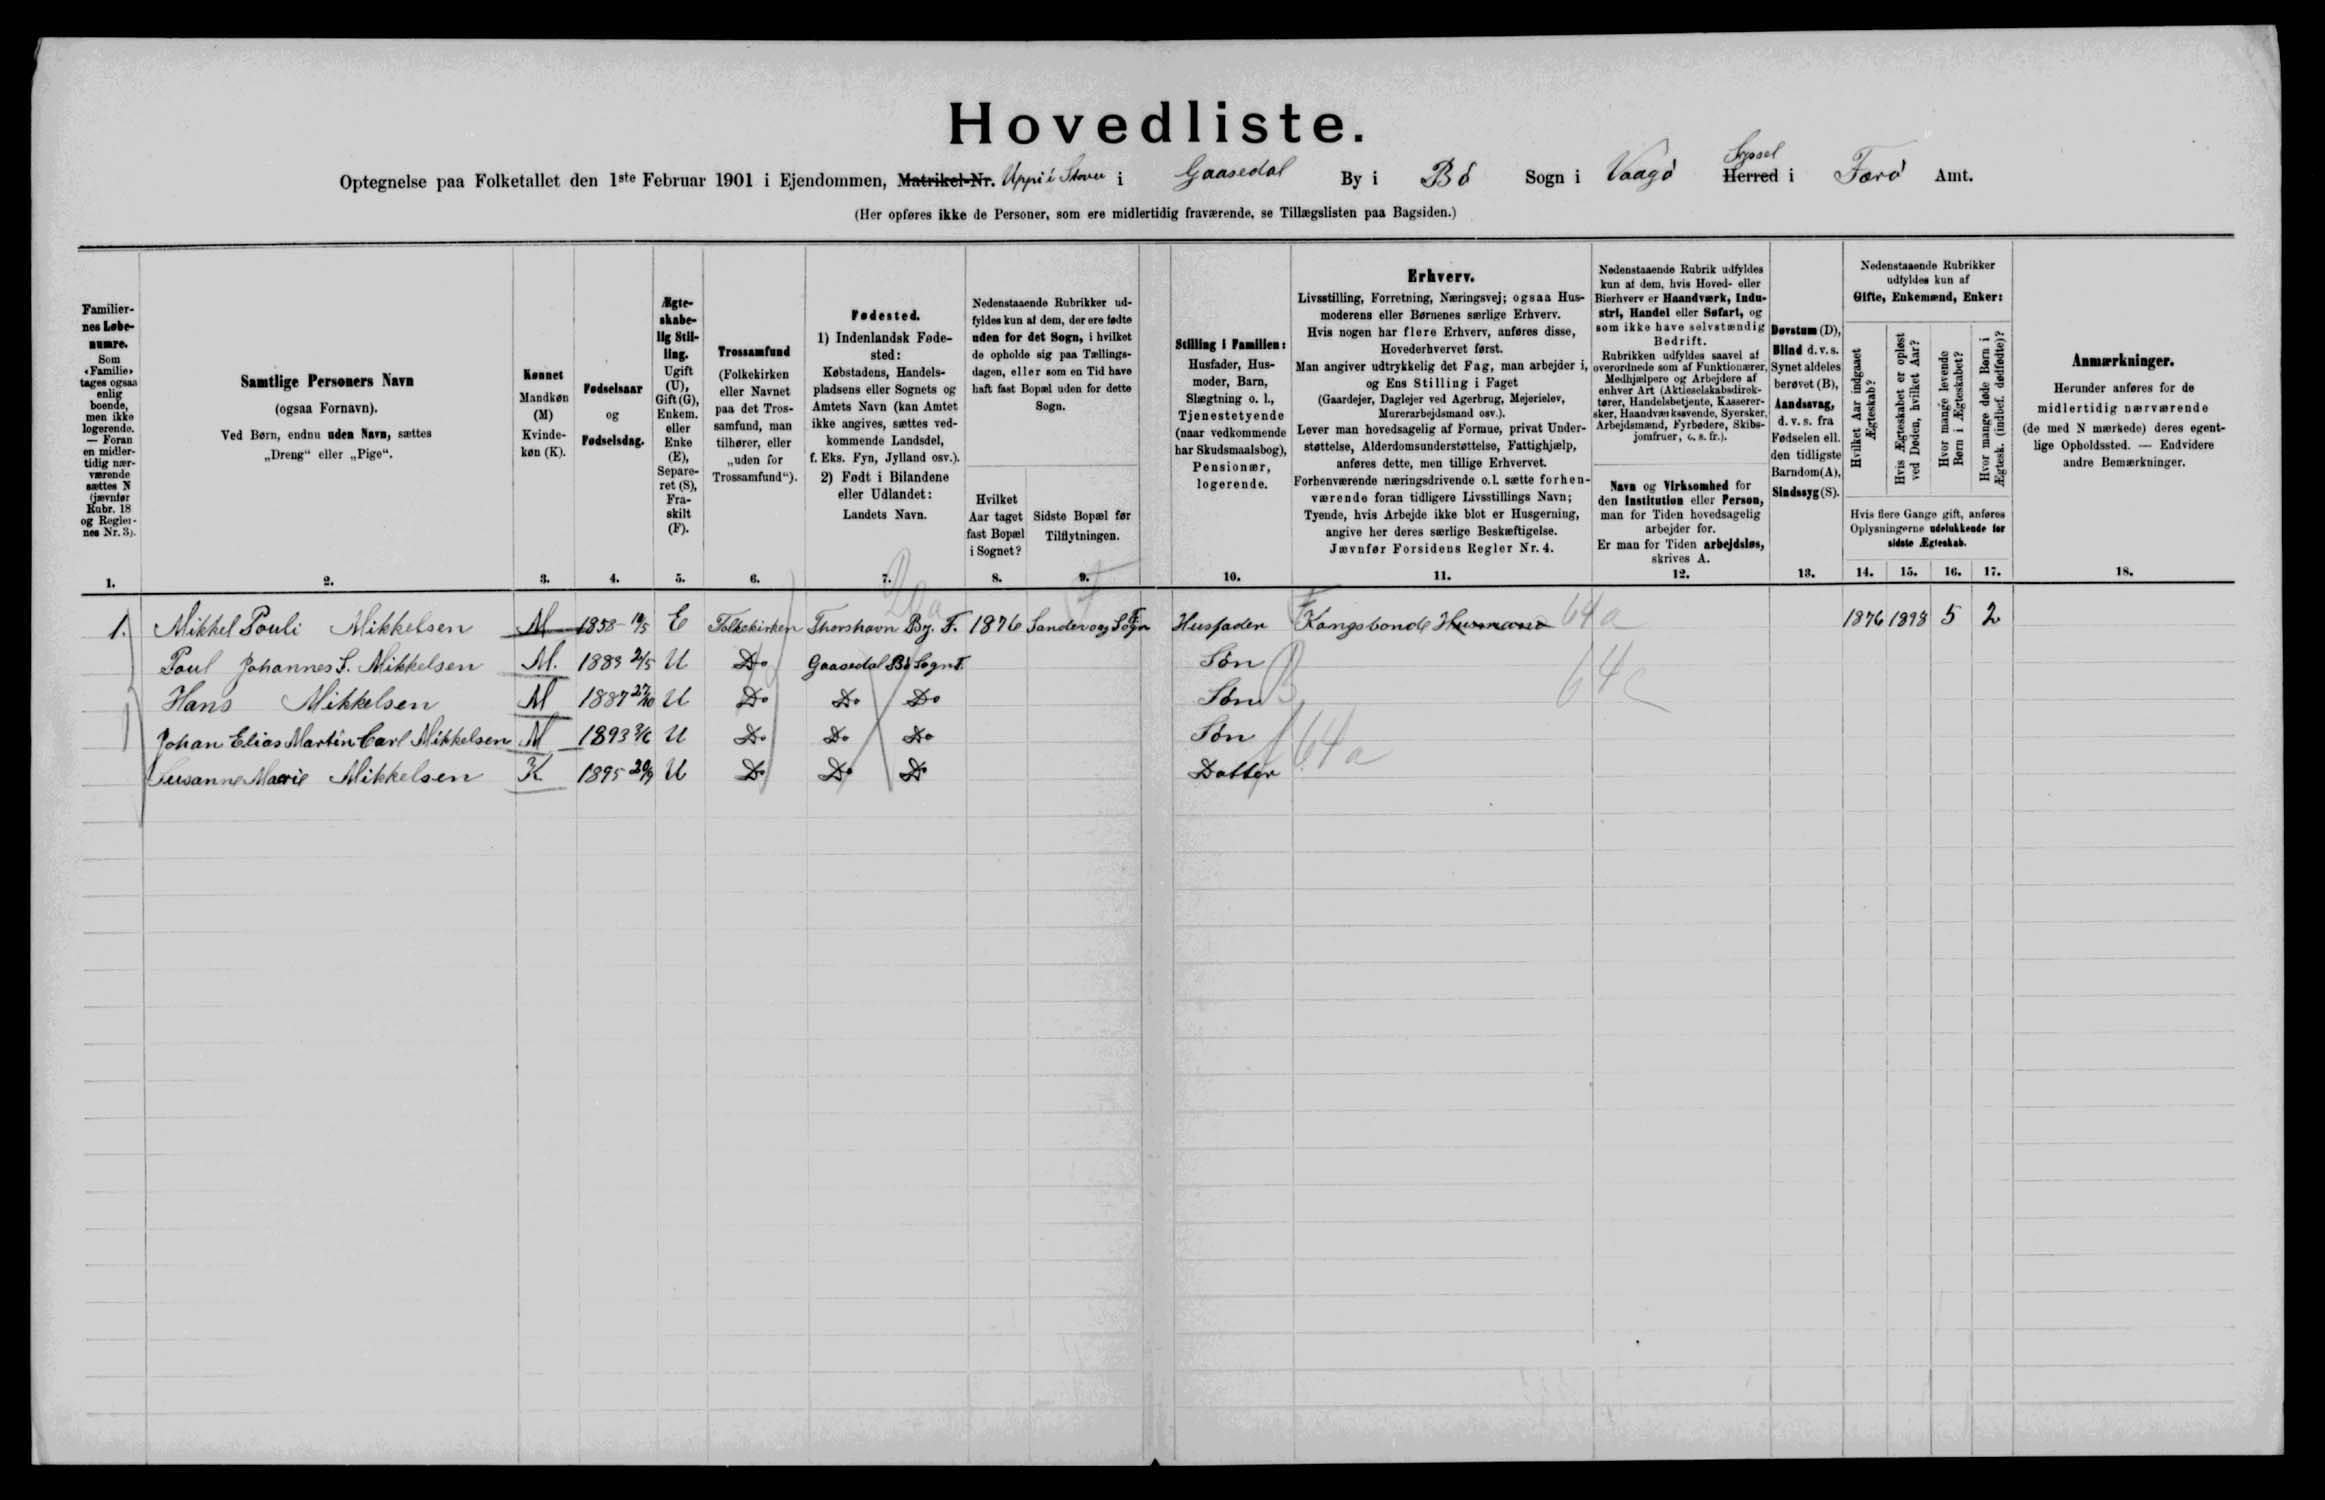 Hovedliste.
Optegnelse paa Folketallet den 1ste Februar 1901 i Ejendommen, Matrikel-Nr. Uppi i Stovu i Gaasedal By i Bø Sogn i Vaagø Herred Syssel i Færø Amt.
(Her opføres ikke de Personer, som ere midlertidig fraværende, se Tillægslisten paa Bagsiden.)
Familiernes Løbenumre.
Som «Familie» tages ogsaa enlig boende, men ikke logerende. — Foran en midlertidig nærværende sættes N (jævnfør Rubr. 18 og Reglernes Nr. 3).
1.
Samtlige Personers Navn
(ogsaa Fornavn).
Ved Børn, endnu uden Navn, sættes
„Dreng“ eller „Pige“.
2.
Kønnet
Mandkøn (M)
Kvindekøn (K).
3.
Fødselsaar
og
Fødselsdag.
4.
Ægteskabelig Stilling.
Ugift (U), Gift (G), Enkem. eller Enke (E), Separeret (S), Fraskilt (F).
5.
Trossamfund
(Folkekirken eller Navnet paa det Trossamfund, man tilhører, eller „uden for Trossamfund“).
6.
Fødested.
1) Indenlandsk Fødested:
Købstadens, Handelspladsens eller Sognets og Amtets Navn (kan Amtet ikke angives, sættes vedkommende Landsdel, f. Eks. Fyn, Jylland osv.).
2) Født i Bilandene eller Udlandet:
Landets Navn.
7.
Nedenstaaende Rubrikker udfyldes kun af dem, der ere fødte uden for det Sogn, i hvilket de opholde sig paa Tællingsdagen, eller som en Tid have haft fast Bopæl uden for dette Sogn.
Hvilket Aar taget fast Bopæl i Sognet?
8.
Sidste Bopæl før Tilflytningen.
9.
Stilling i Familien:
Husfader, Husmoder, Barn, Slægtning o. l., Tjenestetyende (naar vedkommende har Skudsmaalsbog), Pensionær, logerende.
10.
Erhverv.
Livsstilling, Forretning, Næringsvej; ogsaa Husmoderens eller Børnenes særlige Erhverv.
Hvis nogen har flere Erhverv, anføres disse, Hovederhvervet først.
Man angiver udtrykkelig det Fag, man arbejder i, og Ens Stilling i Faget
(Gaardejer, Daglejer ved Agerbrug, Mejerielev, Murerarbejdsmand osv.).
Lever man hovedsagelig af Formue, privat Understøttelse, Alderdomsunderstøttelse, Fattighjælp, anføres dette, men tillige Erhvervet.
Forhenværende næringsdrivende o. l. sætte forhenværende foran tidligere Livsstillings Navn;
Tyende, hvis Arbejde ikke blot er Husgerning, angive her deres særlige Beskæftigelse.
Jævnfør Forsidens Regler Nr. 4.
11.
Nedenstaaende Rubrik udfyldes kun af dem, hvis Hoved- eller Bierhverv er Haandværk, Industri, Handel eller Søfart, og som ikke have selvstændig Bedrift.
Rubrikken udfyldes saavel af overordnede som af Funktionærer, Medhjælpere og Arbejdere af enhver Art (Aktieselskabsdirektører, Handelsbetjente, Kasserersker, Haandværkssvende, Syersker, Arbejdsmænd, Fyrbødere, Skibsjomfruer, o. s. fr.).
Navn og Virksomhed for den Institution eller Person, man for Tiden hovedsagelig arbejder for.
Er man for Tiden arbejdsløs, skrives A.
12.
Døvstum (D),
Blind d. v. s. Synet aldeles berøvet (B),
Aandssvag, d. v. s. fra Fødselen ell. den tidligste Barndom (A),
Sindssyg (S).
13.
Nedenstaaende Rubrikker udfyldes kun af
Gifte, Enkemænd, Enker:
Hvilket Aar indgaaet Ægteskab?
Hvis Ægteskabet er opløst ved Døden, hvilket Aar?
Hvor mange levende Børn i Ægteskabet?
Hvor mange døde Børn i Ægtesk. (indbef. dødfødte)?
Hvis flere Gange gift, anføres Oplysningerne udelukkende for sidste Ægteskab.
14. 15. 16. 17.
Anmærkninger.
Herunder anføres for de midlertidig nærværende (de med N mærkede) deres egentlige Opholdssted. — Endvidere andre Bemærkninger.
18.
1. Mikkel Pouli Mikkelsen M 1858 19/5 E Folkekirken Thorshavn By. F. 1876 Sandevog Sogn F Husfader Kongsbonde Husmand 64a 1876 1898 5 2
Poul Johannes S. Mikkelsen M. 1883 2/5 U Do Gaasedal Bø Sogn F. Søn 64c
Hans Mikkelsen M 1887 27/10 U Do Do Do Søn
Johan Elias Martin Carl Mikkelsen M 1893 3/6 U Do Do Do Søn 64a
Susanne Marie Mikkelsen K 1895 20/9 U Do Do Do Datter